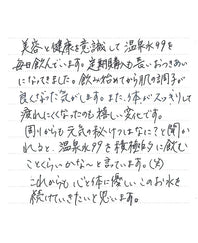 美容と健康を意識して温泉水99を
毎日飲んでいます。定期購入も長いおつきあい
になってきました。飲み始めてから肌の調子が
良くなった気がします。また、体がスッキリして
疲れにくくなったのも嬉しい変化です。
周りからも元気の秘けつはなに?と聞か
れると、温泉水99を積極的に飲む
ことくらいかな〜と言っています。(笑)
これからも心と体に優しいこのお水を
続けていきたいと思います。